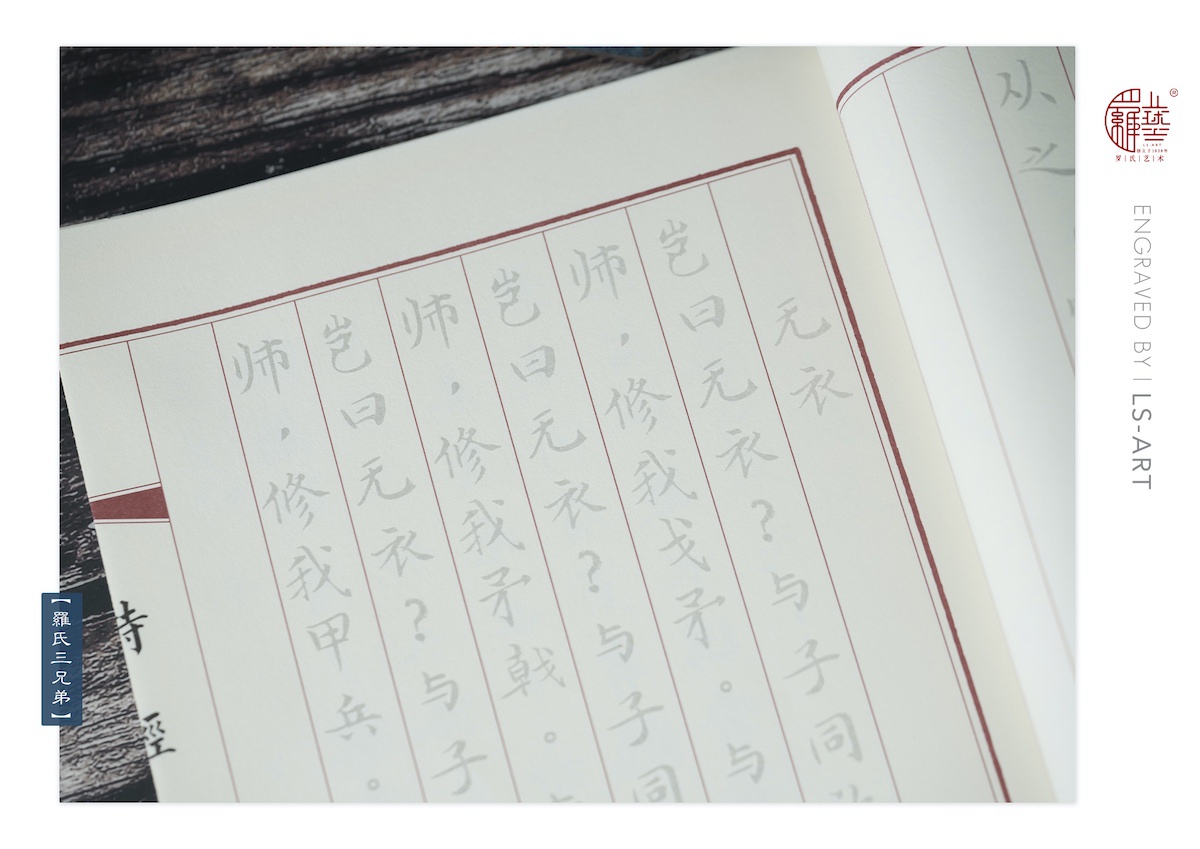 无衣
岂曰无衣？与子同
师，修我戈矛。与
岂曰无衣？与子同
师，修我矛戟。
岂曰无衣？与子
师，修我甲兵。
诗經
从
之
罗氏艺术
LS-ART
ENGRAVED BY | LS-ART
【羅氏三兄弟】